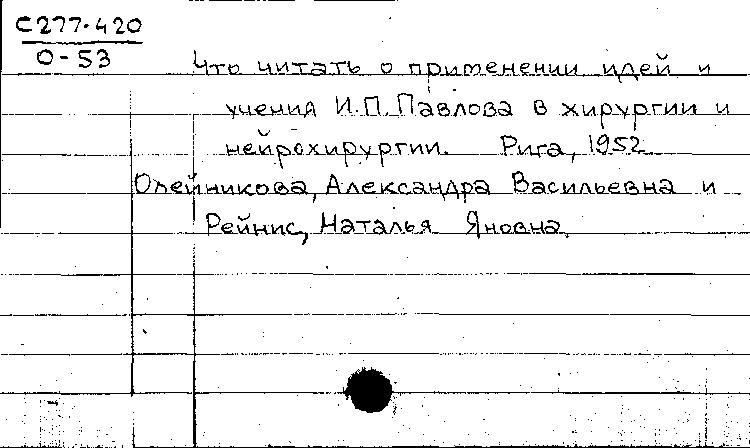 С277.420
О-53
Что читать о применении идей и
учения И.П. Павлова в хирургии и
нейрохирургии. Рига, 1952
Олейникова, Александра Васильевна и
Рейнис, Наталья Яновна.